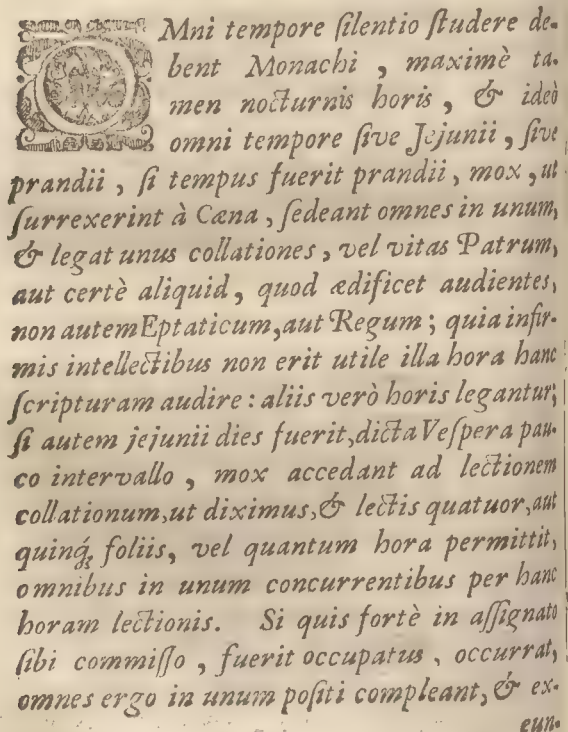 OMni tempore ſilentio ſtudere de-
bent Monachi , maximè ta-
men nocturnis horis , & ideò
omni tempore ſive Jejunii , ſive
prandii , ſi tempus fuerit prandii , mox , ut
ſurrexerint à Cæna , ſedeant omnes in unum,
& legat unus collationes , vel vitas Patrum,
aut certè aliquid , quod ædificet audientes,
non autem Eptaticum, aut Regum ; quia infir-
mis intellectibus non erit utile illa hora hanc
ſcripturam audire : aliis verò horis legantur;
ſi autem jejunii dies fuerit, dicta Veſpera pau-
co intervallo , mox accedant ad lectionem
collationum, ut diximus, & lectis quatuor, aut
quinq́; foliis, vel quantum hora permittit,
omnibus in unum concurrentibus per hanc
horam lectionis. Si quis fortè in aſſignato
ſibi commiſſo , fuerit occupatus , occurrat,
omnes ergo in unum poſiti compleant, & ex-
eun-